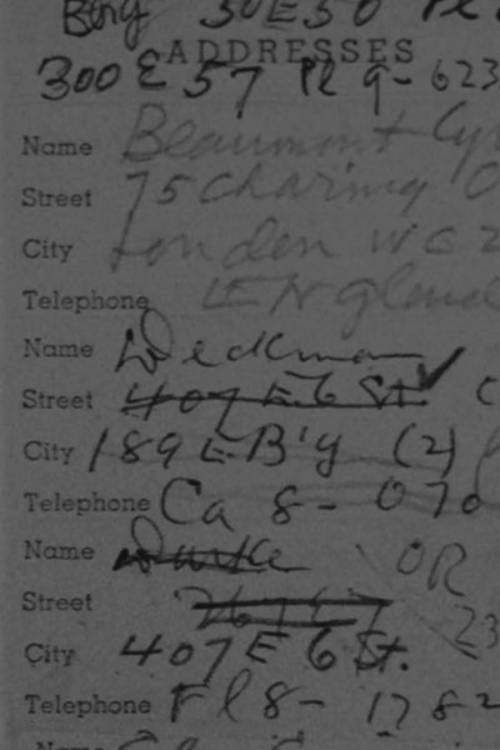 Berg 30E50 Pl
ADDRESSES
300 E 57 Pl 9-623
Name Beaumont Cy
Street 75 Charing
City London WC2
Telephone ENgland
Name Weckman
Street 407 E 6 St.
City 189 E B'y (2)
Telephone Ca 8-070
Name OR
Street 23
City 407 E 6 St.
Telephone Fl 8-1782
Name